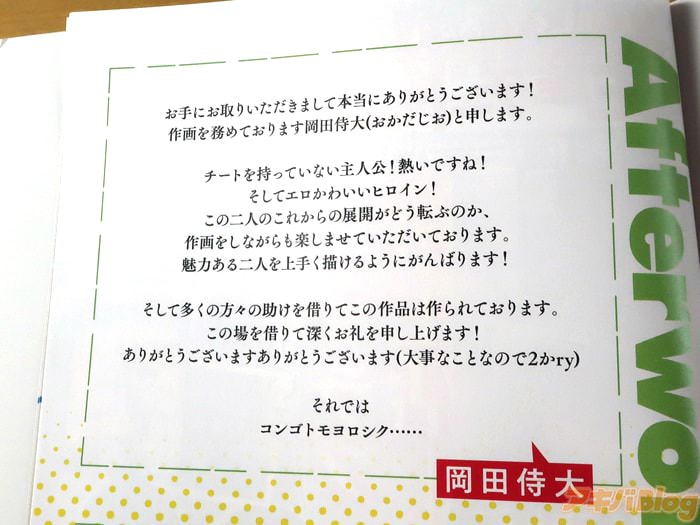 お手にお取りいただきまして本当にありがとうございます!
作画を務めております岡田侍大(おかだじお)と申します。
チートを持っていない主人公!熱いですね!
そしてエロかわいいヒロイン!
この二人のこれからの展開がどう転ぶのか、
作画をしながらも楽しませていただいております。
魅力ある二人を上手く描けるようにがんばります!
そして多くの方々の助けを借りてこの作品は作られております。
この場を借りて深くお礼を申し上げます!
ありがとうございますありがとうございます(大事なことなので2かry)
それでは
コンゴトモヨロシク……
岡田侍大
Afterwo
アキバBlog